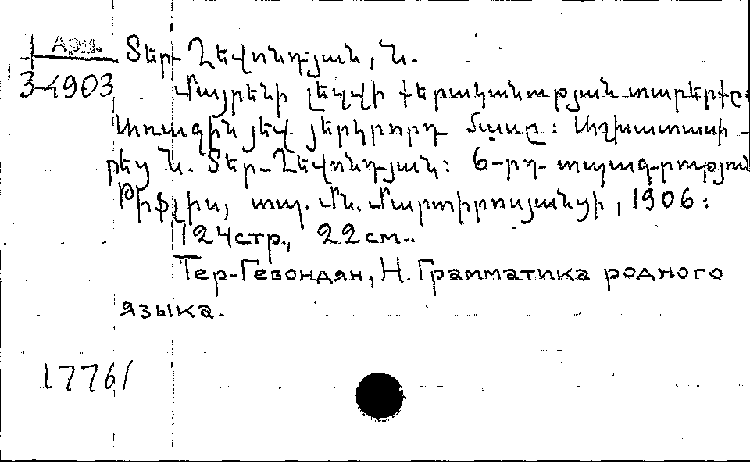 Арм. Տեր-Ղևոնդյան, Ն.
3-4903 Մայրենի լեզվի քերականության տարերքը:
Առաջին յեվ յերկրորդ մասը: Աշխատասի-
րեց Ն. Տեր-Ղեվոնդյան: 6-րդ տպագրություն
Թիֆլիս, տպ. Մն. Մարտիրոսյանցի, 1906:
124стр., 22см.
Тер-Гевондян, Н. Грамматика родного
языка.
17761